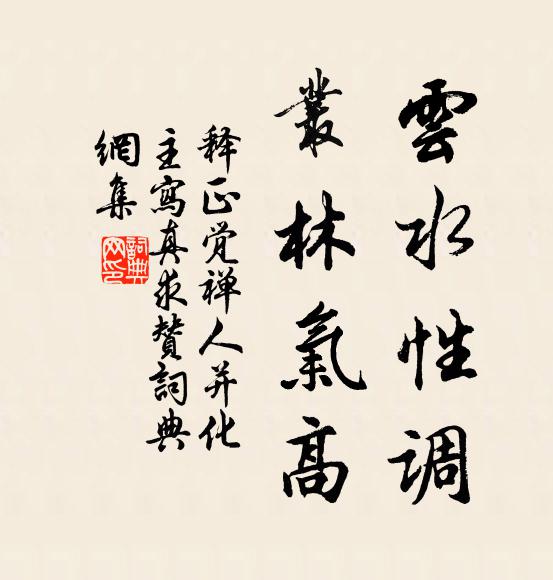 雲水性調
叢林氣高
释正觉禅人并化
主寫真求贊詞典
網集
詞典網印